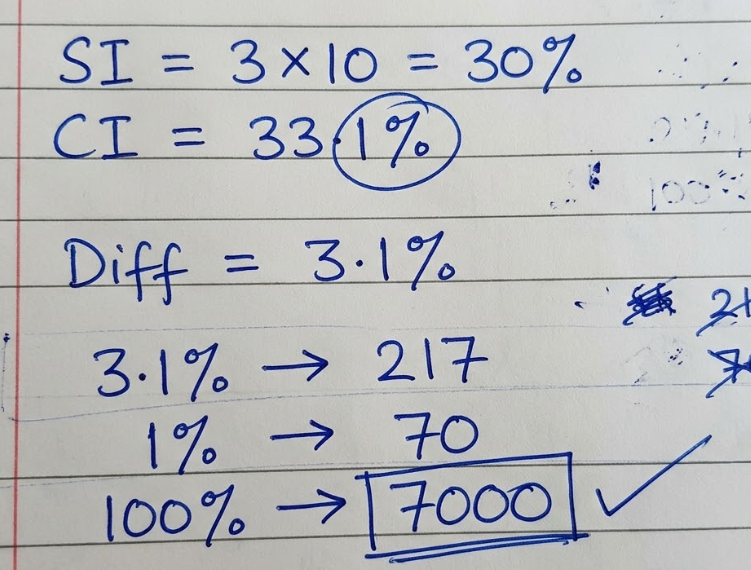 SI = 3×10 = 30%
CI = 33.1%
Diff = 3.1%
3.1% → 217
1% → 70
100% → 7000 ✓